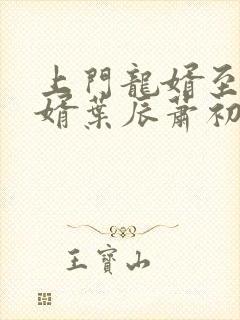 上門龍婿至
婿葉辰蕭初
王寶山